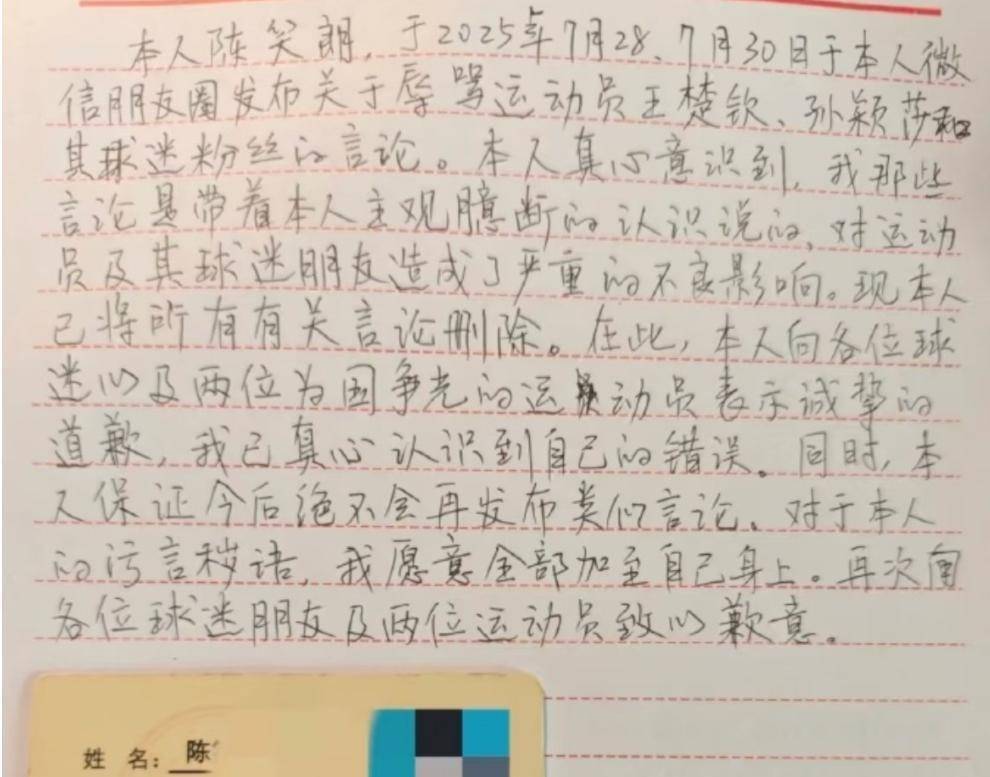 本人陈笑朗，于2025年7月28、7月30日于本人微
信朋友圈发布关于辱骂运动员王楚钦、孙颖莎和
其球迷粉丝的言论。本人真心意识到，我那些
言论是带着本人主观臆断的认识说的，对运动
员及其球迷朋友造成了严重的不良影响。现本人
已将所有有关言论删除。在此，本人向各位球
迷以及两位为国争光的运动员表示诚挚的
道歉，我已真心认识到自己的错误。同时，本
人保证今后绝不会再发布类似言论。对于本人
的污言秽语，我愿意全部加至自己身上。再次向
各位球迷朋友及两位运动员致以歉意。
姓 名：陈